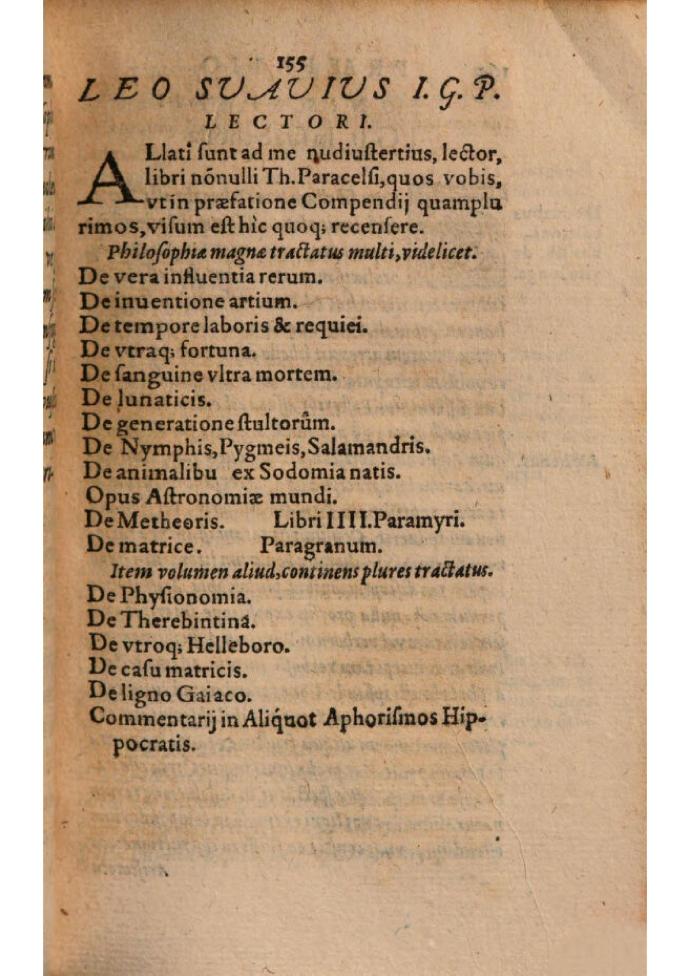 155
LEO SUAVIUS I.G.P.
LECTORI.
ALlati sunt ad me nudiustertius, lector,
libri nõnulli Th.Paracelsi,quos vobis,
vt in præfatione Compendij quamplu
rimos,visum est hîc quoq; recensere.
Philosophiæ magnæ tractatus multi,videlicet.
De vera influentia rerum.
De inuentione artium.
De tempore laboris & requiei.
De vtraq; fortuna.
De sanguine vltra mortem.
De lunaticis.
De generatione stultorûm.
De Nymphis,Pygmeis,Salamandris.
De animalibu ex Sodomia natis.
Opus Astronomiæ mundi.
De Metheoris. Libri IIII.Paramyri.
De matrice. Paragranum.
Item volumen aliud,continens plures tractatus.
De Physionomia.
De Therebintina.
De vtroq; Helleboro.
De casu matricis.
De ligno Gaiaco.
Commentarij in Aliquot Aphorismos Hip-
pocratis.